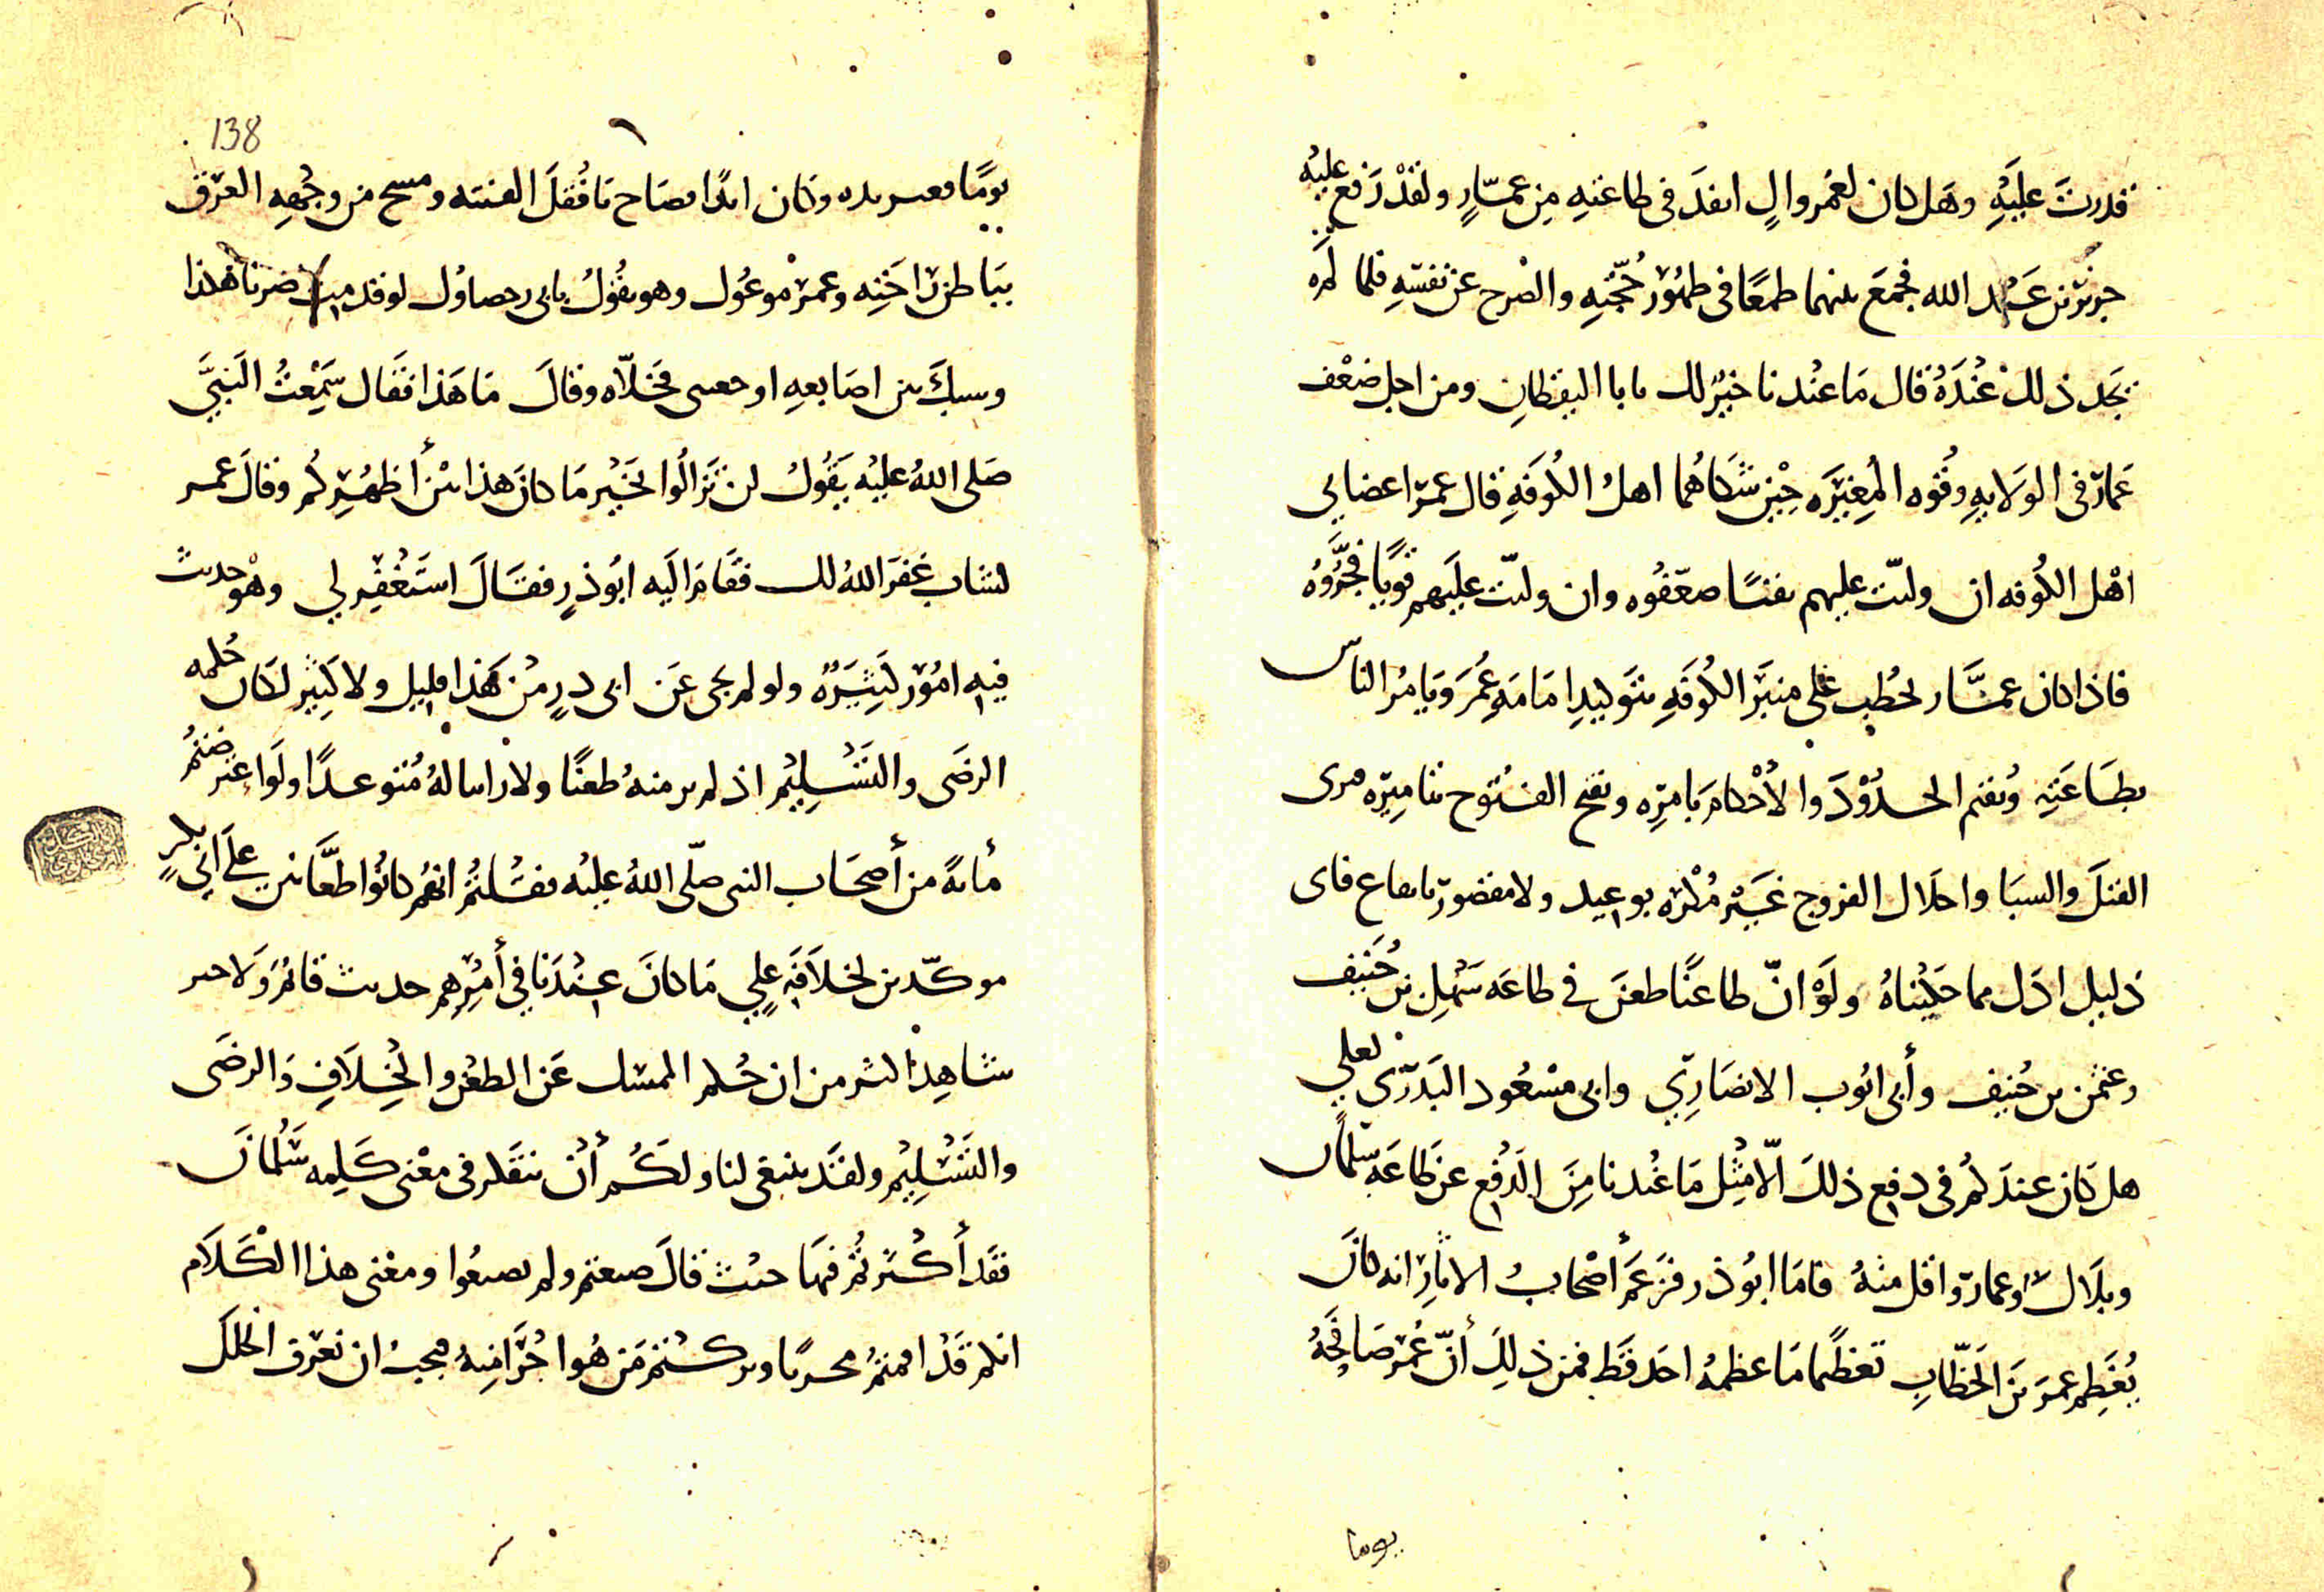 قدرت عليَهِ وهَل كان لعُمر والٍ انفدَ في طاعتهِ مِن عمَّارٍ ولقدْ رَفع عليْه
جرير بن عَبْد الله فجمَعَ بينهما طمعًا في ظهُور حُجَّتِهِ والصرح عَن نفسهِ فلما لم
يجَد ذلك عْندَهُ قال مَا عنْدنا خيْر لك يابا اليقظانِ ومن اجل ضعْف
عَمّار في الولايهِ وقُوه المُغِيَره حِيْن شكاهُما اهلُ الكُوفَهِ قال عمرَ اعضل بي
اهْل الكُوفه ان وليّت عليهم تقيًا ضعّفُوه وان وليّت عليَهم قويًا فجَّرُوهُ
فاذا كان عمَّار يخطُب على منبَر الكُوفَهِ بتَوليدِ امامَهِ عُمَرَ وَيامُر الناس
بطَاعَتِه وُيقيم الحدُوْدَ والأحْكامَ بامرِه ويفتح الفتُوح بتاميرِه فيرى
القتلَ والسبَا واحلَال الفروج غَيْر مُكْرَه بوعيد ولا مقصور بايقاع فاى
دَليل ادَل مما حَكيْناهُ ولَوْ انّ طاعنًا طعنَ في طاعَه سَهْلِ بن حُنَيف
وعثمن بن حُنيف وأبي ايُوب الانصَارِيّ وابي مسْعُود البَدرّي لعلي
هل كان عندَكم في دَفع ذلكَ الّا مثِل مَا عنْدنا مِنَ الَدفْع عن طاعَهِ سَلمان
وبلَال وعمار واقل منهُ فامَا ابُوذر فزَعَمَ أصْحابُ الاثار انه كانَ
يُعَظِم عمرَ بنَ الخَطّابِ تعظيمًا مَا عظمهُ احَد قَط فمن ذلِكَ أنّ عُمَر صَافحَهُ
يوما
138
يومًا فعصر يده وكان ايدًا فصَاح يَا قُفلَ الفتنه ومسح من وجُههِ العرَق
ببَاطن راحَتِه وعمر موعُوك وهو يقُولُ يابى رحصاوُك لو قد مِتَّ صرنا هكذا
وسبكَ بين اصَابعهِ اوحعنى فخلّاه وقالَ مَا هَذا فقَال سَمِعْتُ النَبيَّ
صَلى اللهُ عليْه يَقُولُ لن تزَالُوا بخَيْر مَا كانَ هذا بيْن أظهُرِكم وقالَ عمر
لشاب غفرَ اللهُ لك فقَام اليَه ابُوذرٍ فقَالَ استَغْفِر لي وهْو حديث
فيهِ امُور كثِيَرَهٌ ولو لم يجى عَن ابى ذرٍ مْن هَذا قليل ولا كثِير لكان حُكمه
الرضَى والتَسْلِيْم اذ لم ير منهُ طعنًا ولا راينا لهُ مُتوعدًا ولوَ اعترضتمُ
مأيهً من أصحَاب النبى صلّى اللهُ عليْه فقُلتُم انهُم كانُوا طعَّانين علَى ابي بكرٍ
موكّدين لخلافَهِ عليٍ مَا كانَ عنْدَنا في أمْرِهم حديث قايمُ وَلا خبر
شاهِد اكثر من ان حُكم الممسك عَن الطعْن والخِلَافِ والرضَى
والتَسْلِيْم ولقَد ينبغى لنا ولكُم أنْ ننظر في معْنى كَلِمه سَلْمانَ
فقَد أكْثرتُم فيهَا حيْث قالَ صنعتم ولم تصنعُوا ومعْنى هذا الكَلام
انكم قَدْ اقمتمُ مجريًا وتركتُم مَن هُوا جْزَا منهُ فيجبُ ان نعرف الخلَلَ